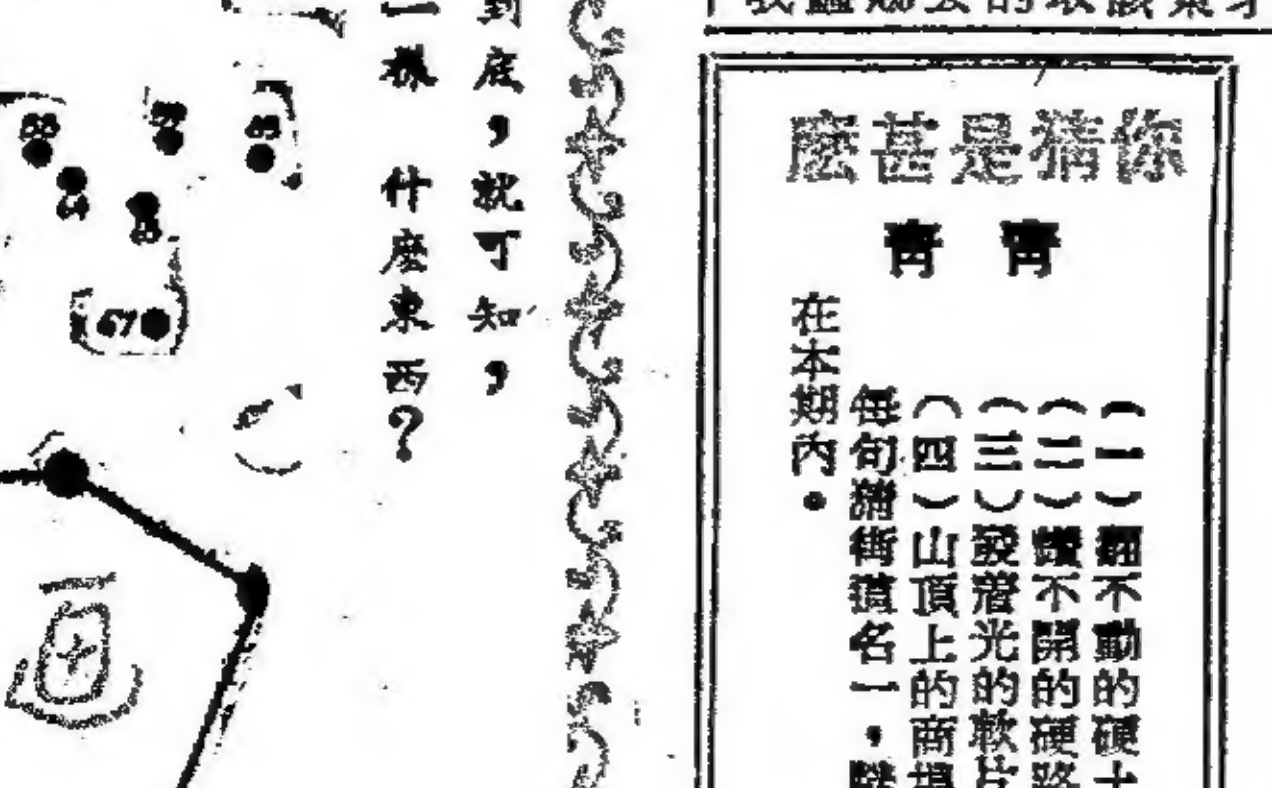 你猜是甚麼
青青
(一)翻不動的硬
(二)鑽不開的硬路
(三)發着光的軟片
(四)山頂上的商場
每句猜街道名一,
在本期內。
到底,就可知,
一樣 什麼東西?
64
67